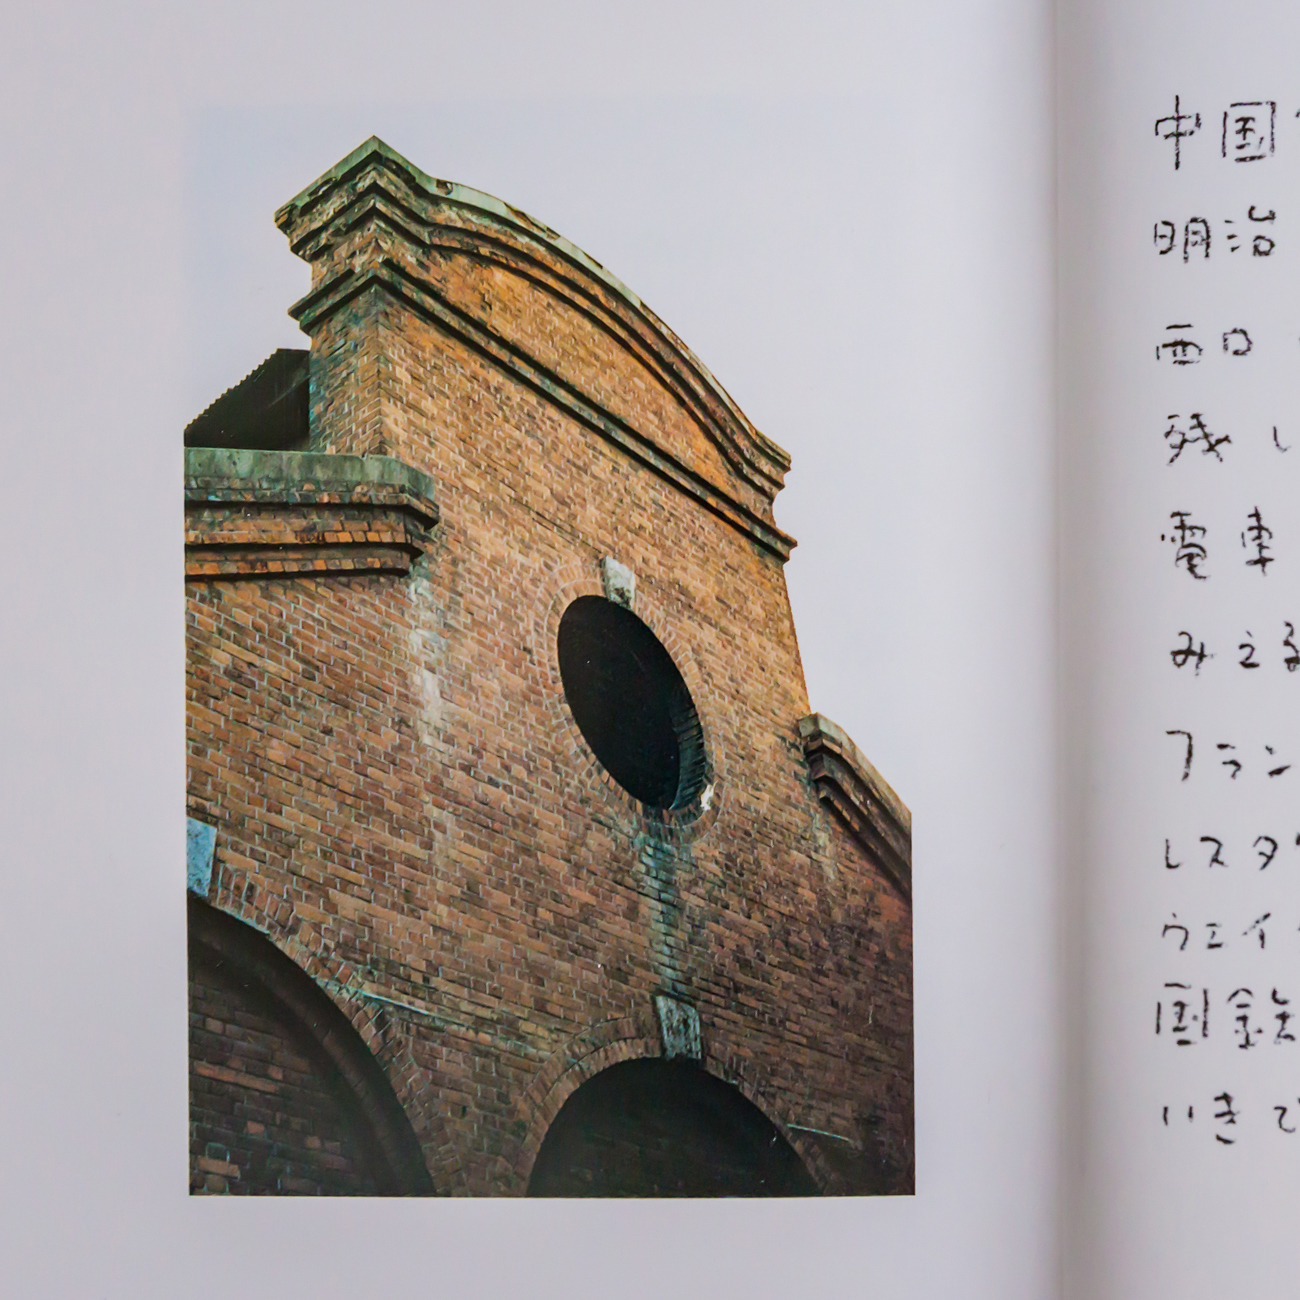 中国
明治
西口
残し
電車
みえる
フラン
レスタ
ウェイ
国鉄
いきて